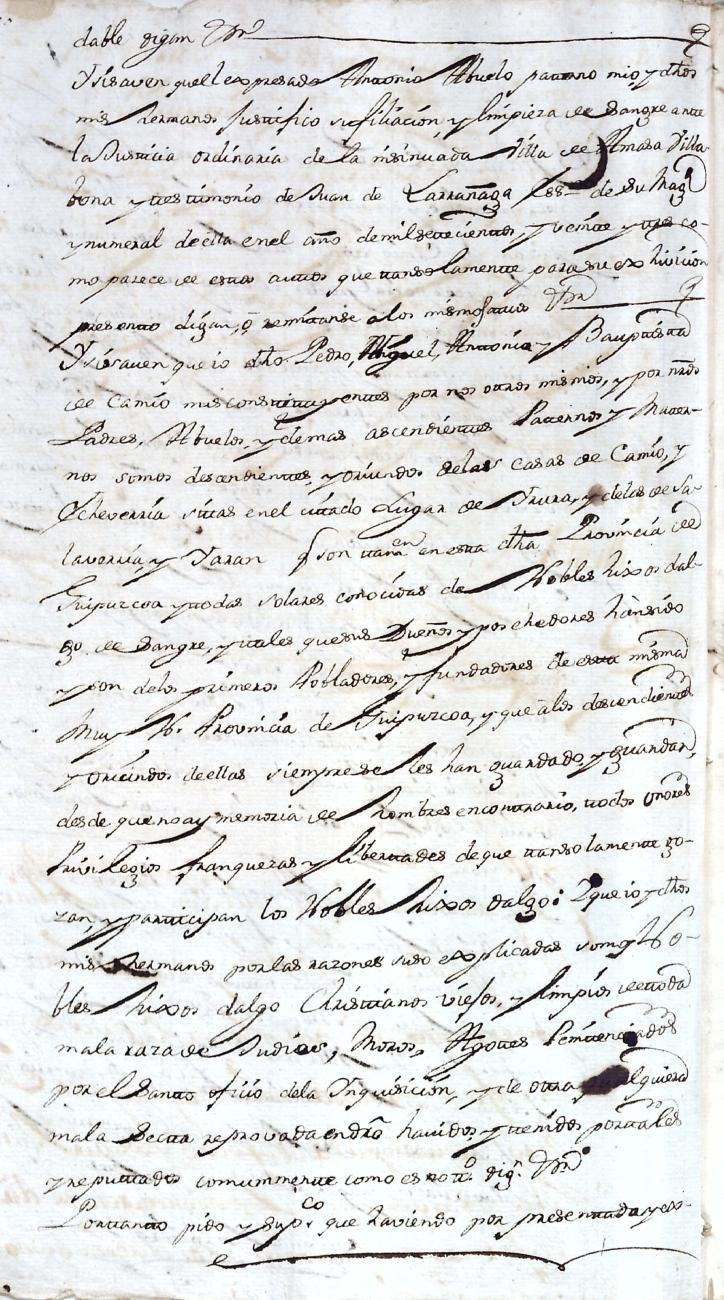 dable digan &ra
Y si saven que el expresado Antonio Abuelo paterno mio, y dhos
mis hermanos Justifico su filiacion y limpieza de Sangre ante
la Justicia ordinaria de la insinuada Villa de Amasa Villa
bona y testimonio de Juan de Larrañaga Essno de Su Magd
y numeral de ella en el año de mil setecientos, y veinte y tres co-
mo parece de estos autos que tan solamente para su exhivicion
presento digan, ô remitanse a los mismos autos &ra
Y si saven que io dho Pedro, Miguel, Antonia y Bauptista
de Camio mis constituyentes por nos otros mismos, y por nros
Padres, Abuelos, y demas ascendientes Paternos y Mater-
nos somos descendientes, y oriundos de las casas de Camio, y
Echeverria sitas en el citado Lugar de Yrura, y de las de Sa-
lavorria, y Yaran q son tamen en esta dha Provincia de
Guipuzcoa y todas solares conocidas de Nobles hixos dal-
go de Sangre, y tales que sus Dueños y posehedores han sido
y son de los primeros Pobladores, y fundadores de esta misma
Muy N. Provincia de Guipuzcoa, y que â los descendientes
y oriundos de ellas siempre se les han guardado, y guardan,
desde que no ay memoria de hombres en contrario, todos onores
Privilegios franquezas y libertades de que tan solamente go-
zan, y participan los Nobles hixos dalgo: Y que io y dhos
mis hermanos por las razones suso explicadas somos No-
bles hixos dalgo Christianos viejos, y limpios de toda
mala raza de Judios, Moros, Agotes Penitenciados
por el Santo oficio de la Ynquisicion, y de otra qualquiera
mala Secta reprovada en dro havidos, y tenidos por tales
y reputados comunmente como es notto. dign. &ra
Por tanto pido y supco que haviendo por presentada y ex-